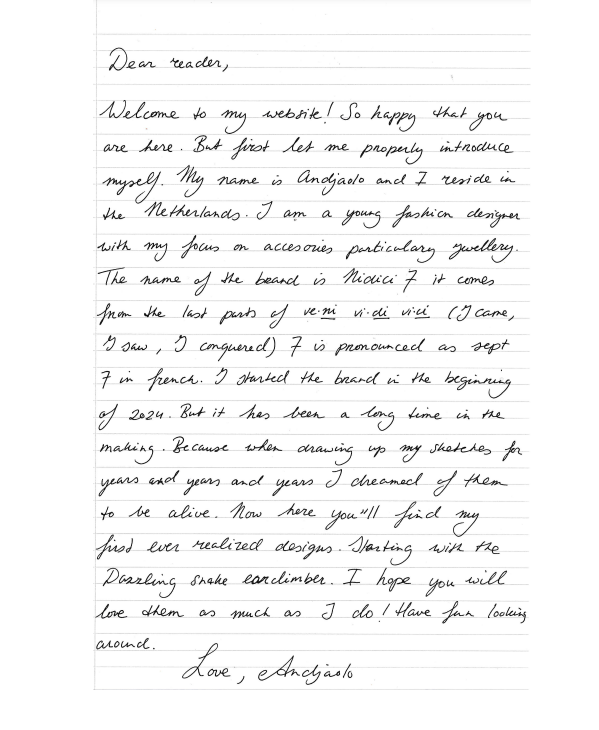 Dear reader,
Welcome to my website! So happy that you
are here. But first let me properly introduce
myself. My name is Andjaolo and I reside in
the Netherlands. I am a young fashion designer
with my focus on accesories particulary jwellery.
The name of the brand is Nidici 7 it comes
from the last parts of ve·ni vi·di vi·ci (I came,
I saw, I conquered) 7 is pronounced as sept
7 in french. I started the brand in the beginning
of 2024. But it has been a long time in the
making. Because when drawing up my sketches for
years and years and years I dreamed of them
to be alive. Now here you"ll find my
first ever realized designs. Starting with the
Dazzling snake earclimber. I hope you will
love them as much as I do! Have fun looking
around.
Love, Andjaolo